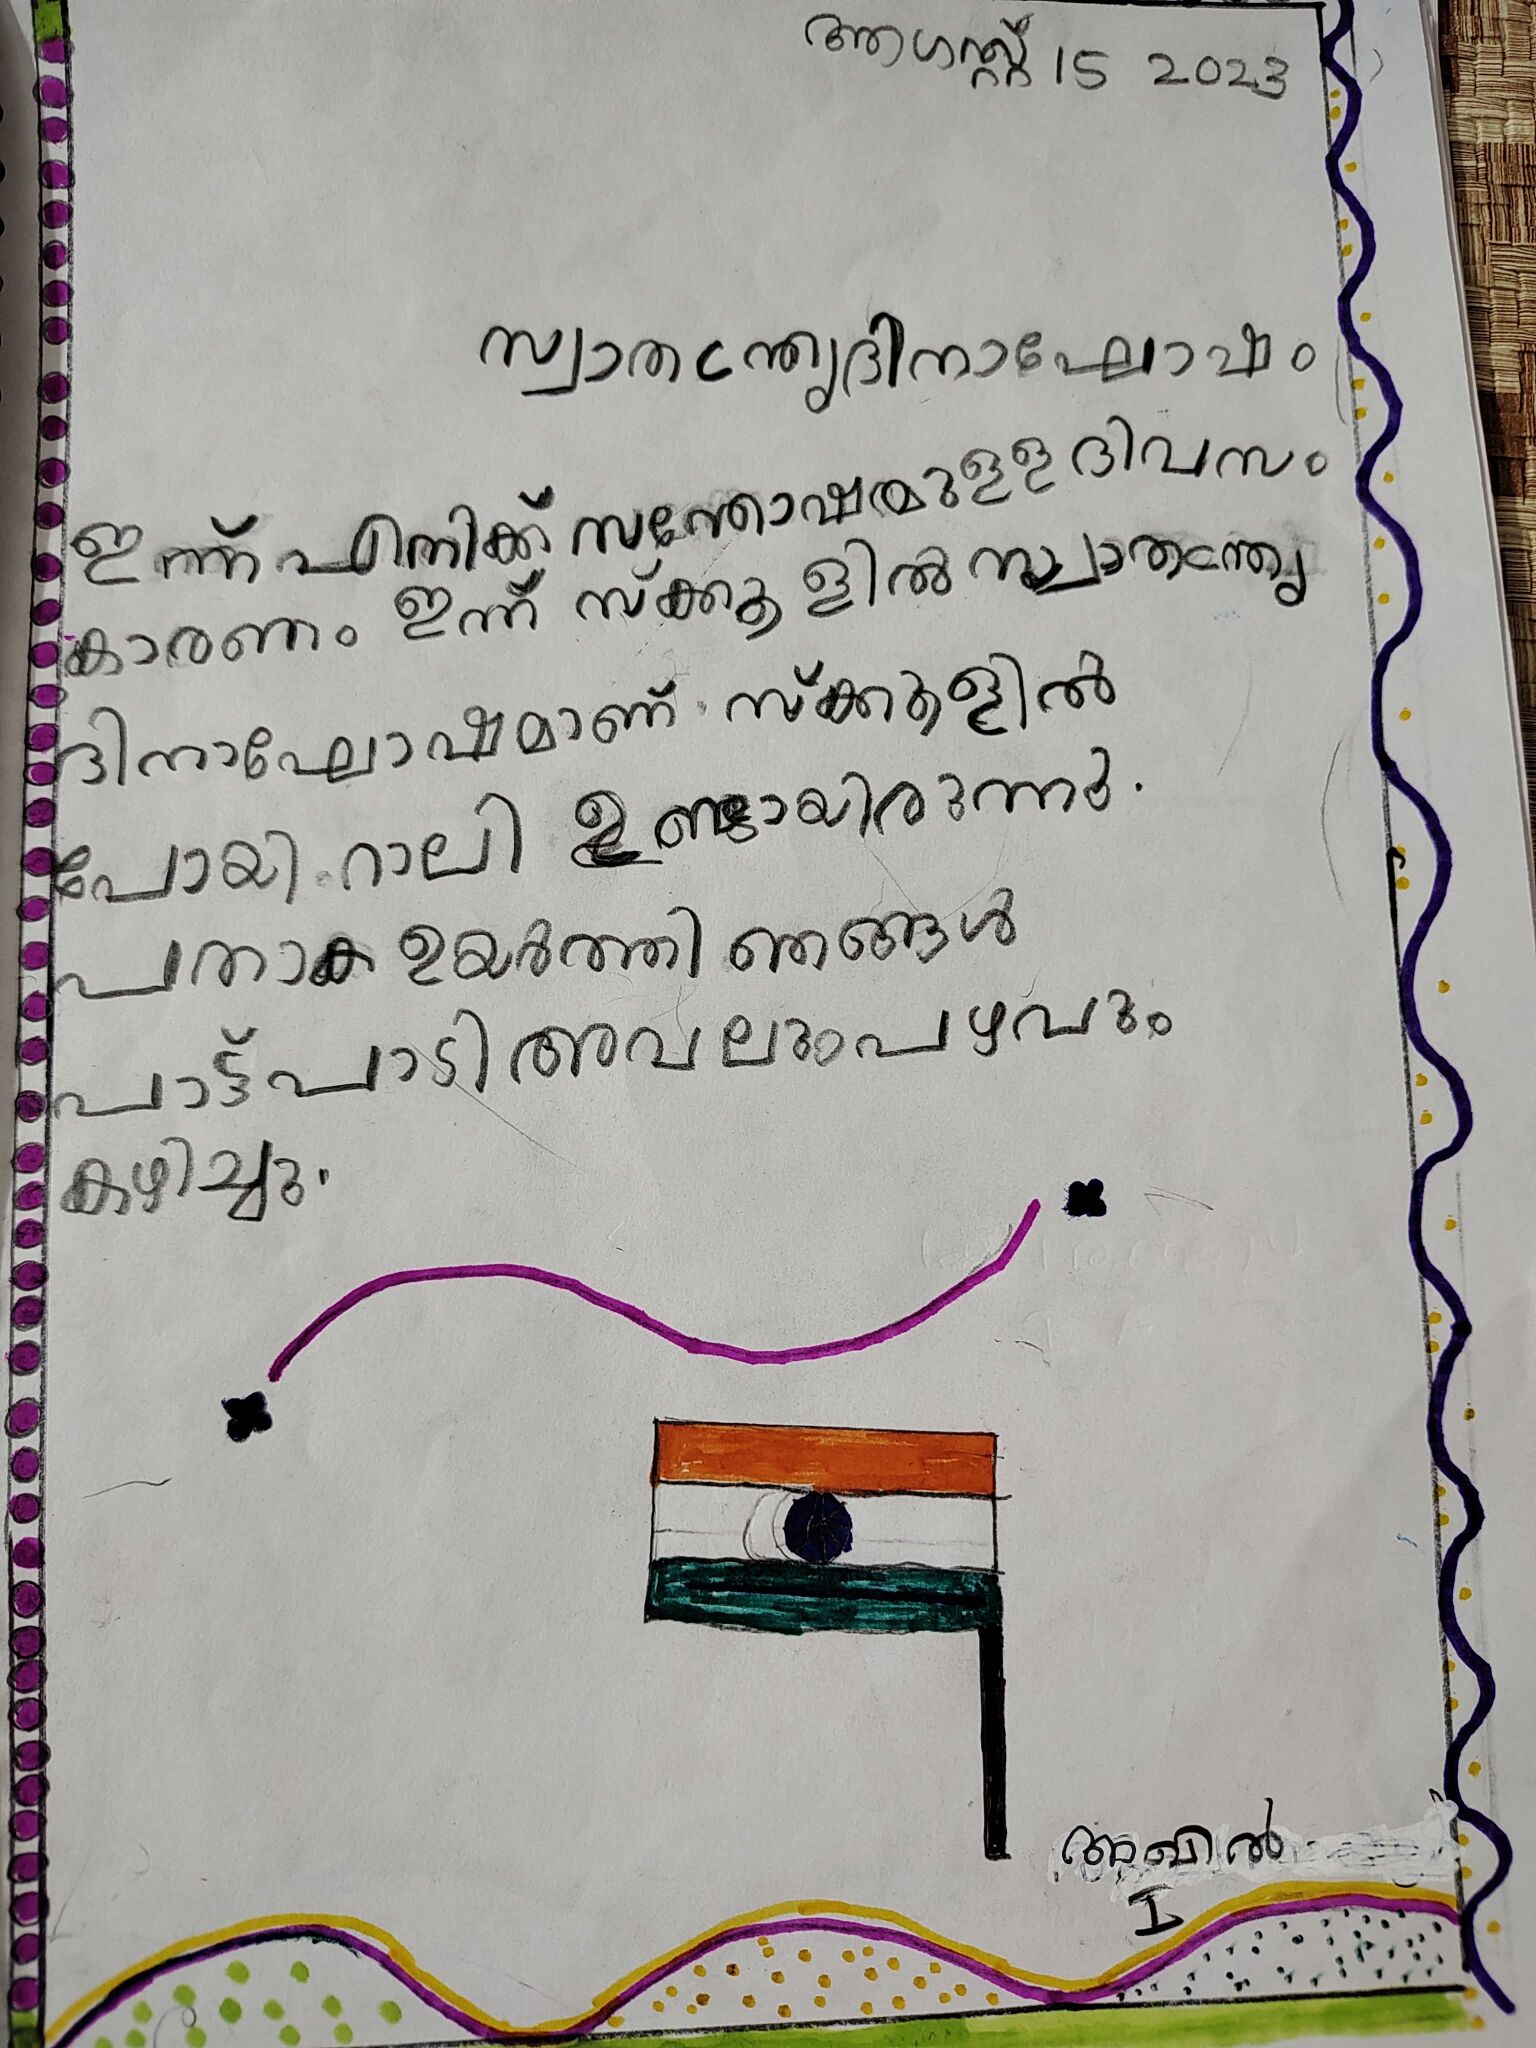 ആഗസ്റ്റ് 15 2023
സ്വാതന്ത്ര്യദിനാഘോഷം
ഇന്ന് എനിക്ക് സന്തോഷമുളള ദിവസം
കാരണം ഇന്ന് സ്ക്കൂളിൽ സ്വാതന്ത്ര്യ
ദിനാഘോഷമാണ്. സ്ക്കൂളിൽ
പോയി. റാലി ഉണ്ടായിരുന്നു.
പതാക ഉയർത്തി ഞങ്ങൾ
പാട്ട് പാടി അവലും പഴവും
കഴിച്ചു.
അഖിൽ
I